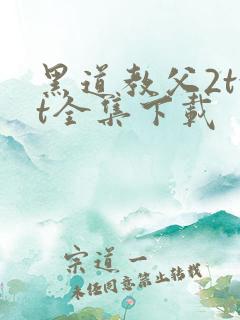 黑道教父2tx
t全集下载
宗道一
未经同意禁止转载